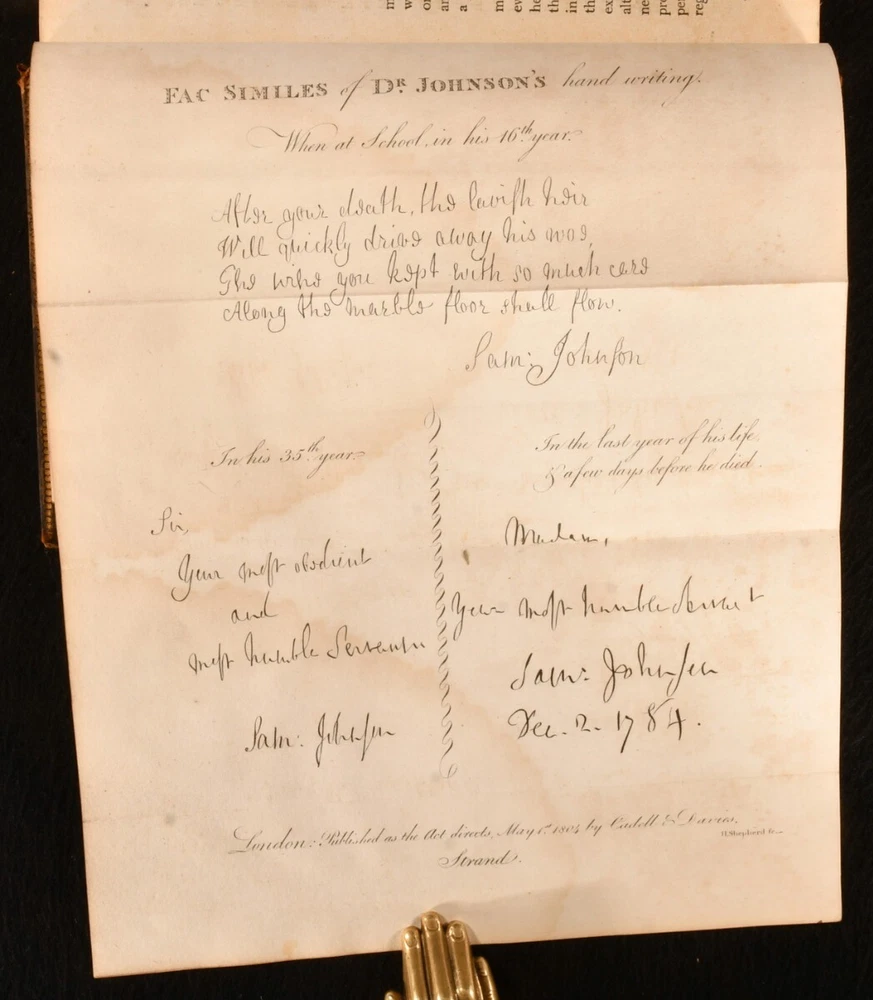 FAC SIMILES of DR. JOHNSON'S hand writing.
When at School, in his 16th year.
After your death, the lavish heir
Will quickly drive away his woe,
The wine you kept with so much care
Along the marble floor shall flow.
Sam: Johnson
In his 35th year.
Sir,
Your most obedient
and
most humble Servant
Sam: Johnson
In the last year of his life,
& a few days before he died.
Madam,
Your most humble servant
Sam: Johnson
Dec. 2. 1784.
London: Published as the Act directs, May 1st 1804, by Cadell & Davies,
Strand.
H. Shepherd